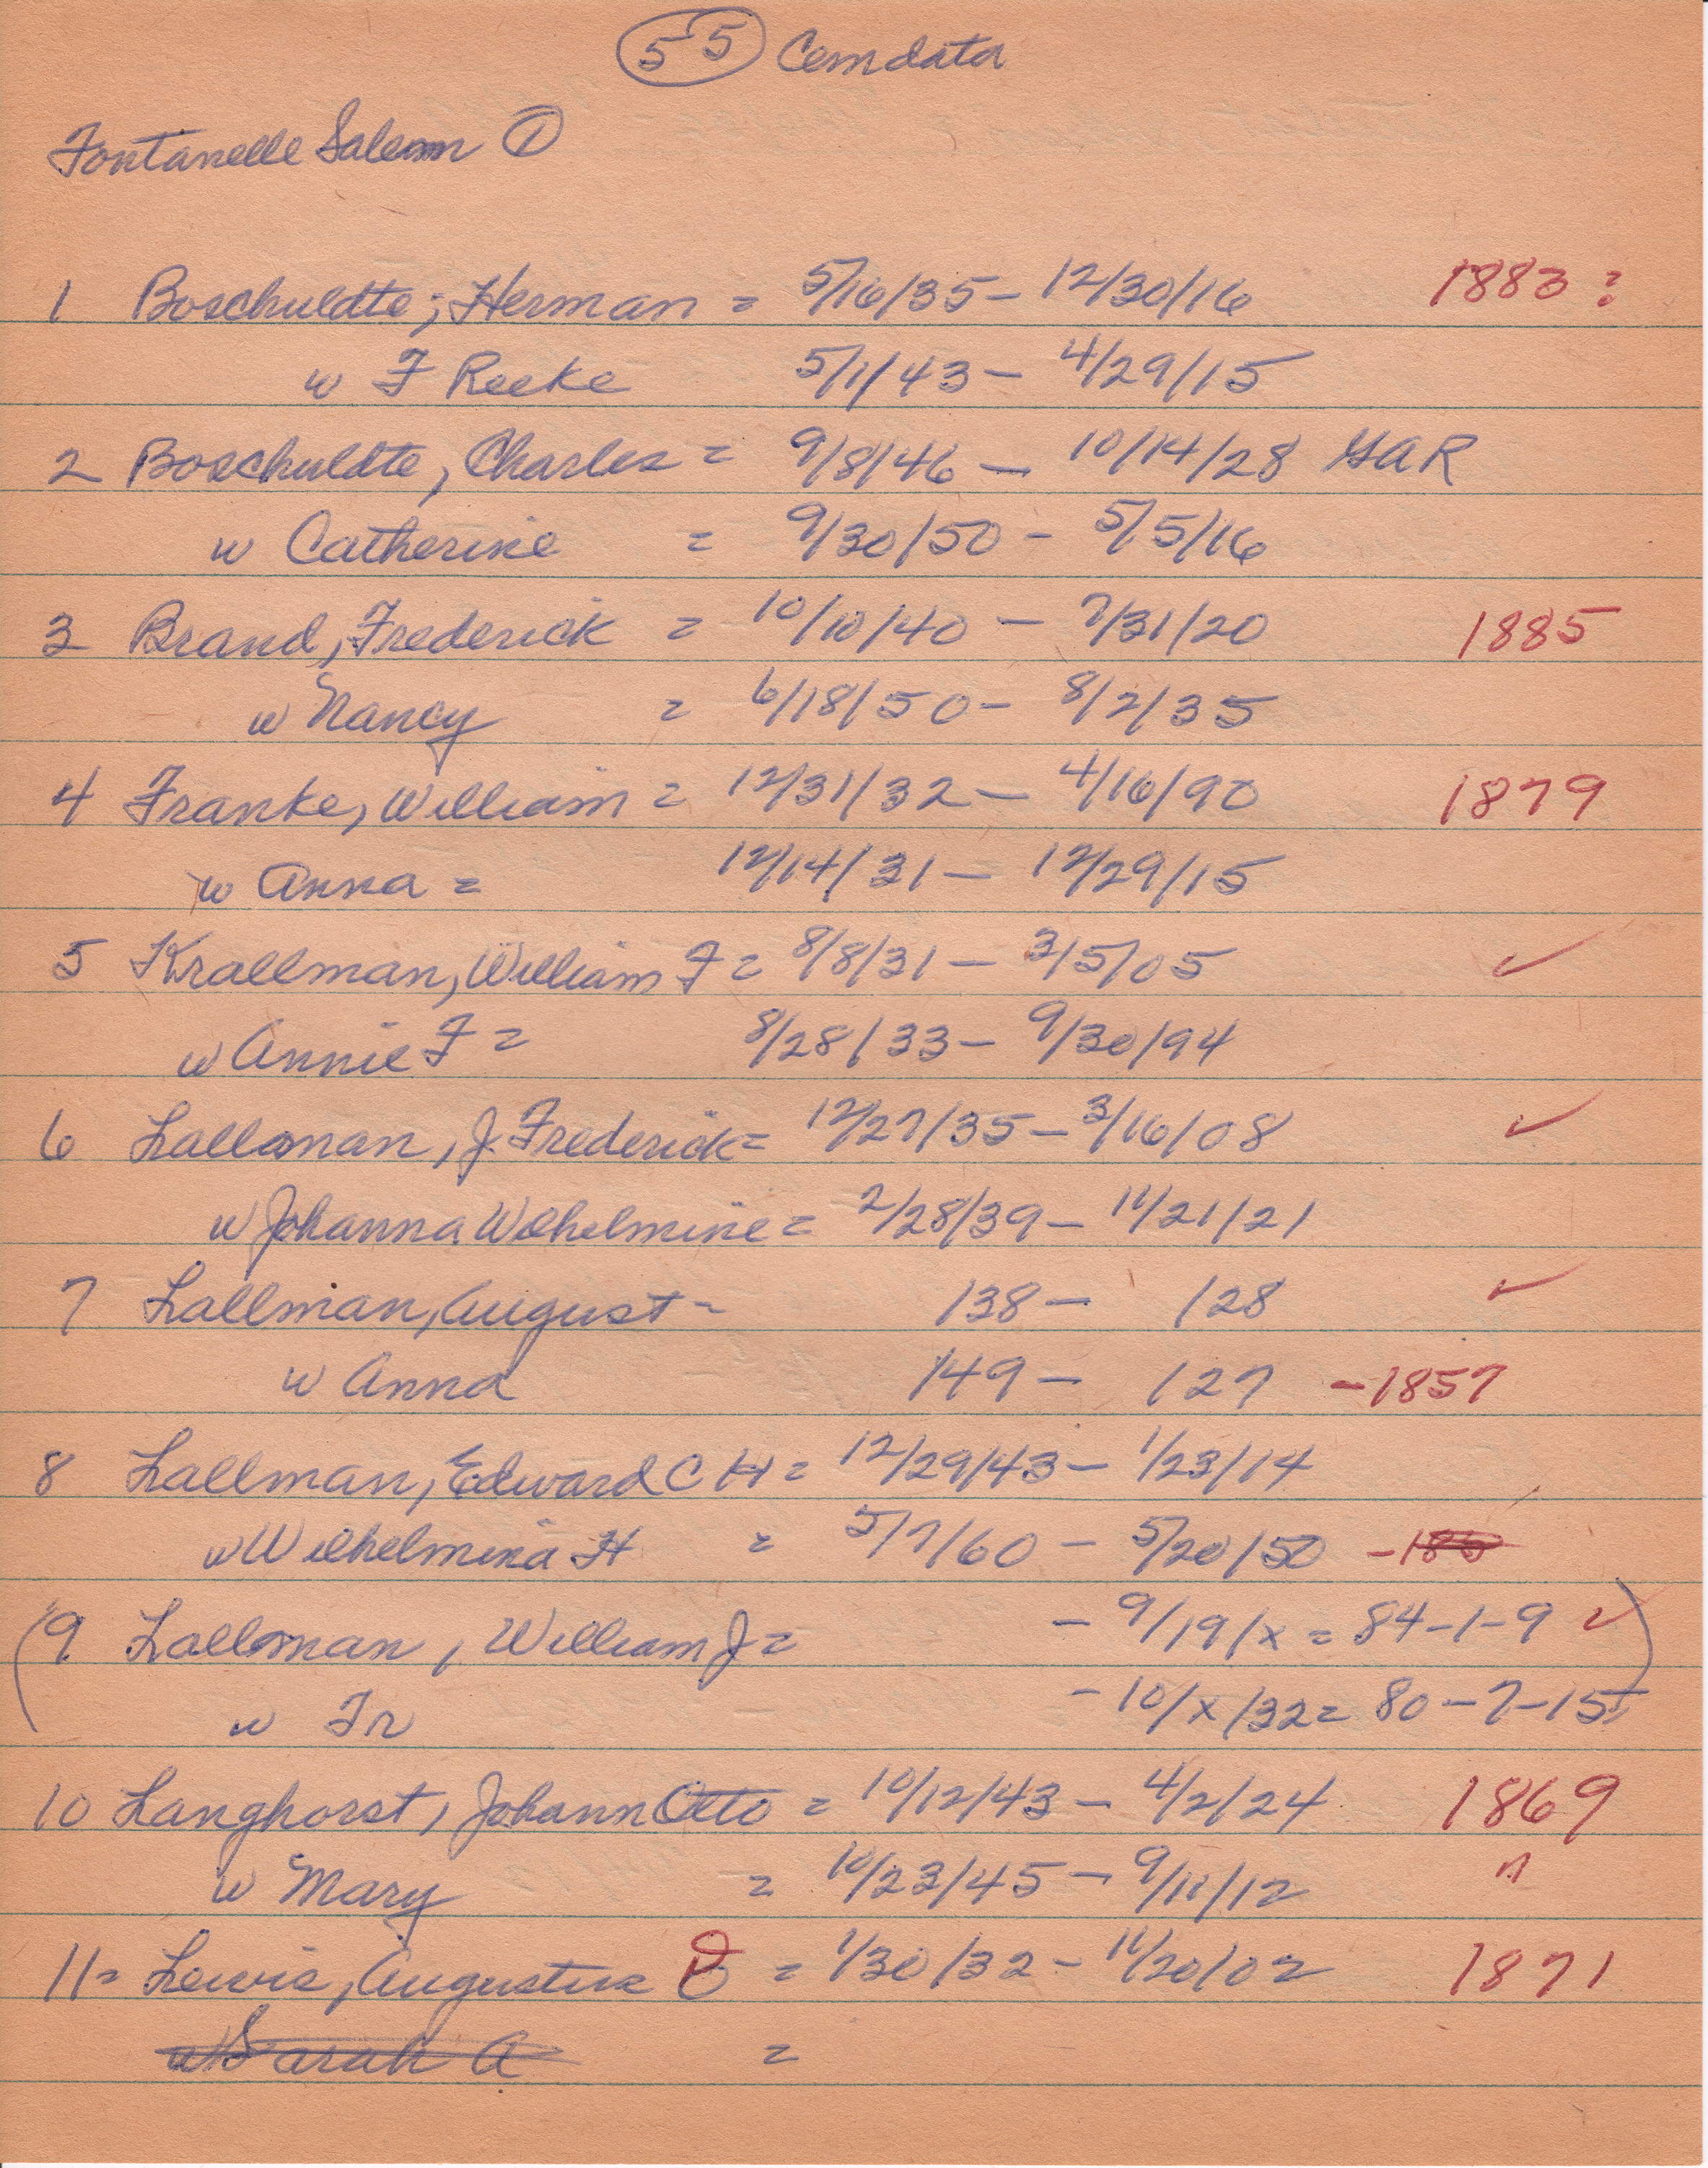 55 Cemdata
Fontanelle Salem 1
1 Boschuldte, Herman = 5/16/35 - 12/30/16 1883 ?
w F Reeke 5/1/43 - 4/29/15
2 Boschuldte, Charles = 9/8/46 - 10/14/28 GAR
w Catherine = 9/30/50 - 5/5/16
3 Brand, Frederick = 10/10/40 - 7/31/20 1885
w Nancy = 6/18/50 - 8/2/35
4 Franke, William = 12/31/32 - 4/16/90 1879
w Anna = 12/14/31 - 12/29/15
5 Krallman, William F = 8/8/31 - 3/5/05 ✓
w Annie F = 8/28/33 - 9/30/94
6 Lallman, J. Frederick = 12/27/35 - 3/16/08 ✓
w Johanna Wilhelmine = 2/28/39 - 11/21/21
7 Lallman, August - 138 - 128 ✓
w Anna 149 - 127 - 1857
8 Lallman, Edward C H = 12/29/43 - 1/23/14
w Wilhelmina H = 5/7/60 - 5/20/50 - 186
(9 Lallman, William J = - 9/19/x = 84-1-9 ✓)
w Fr - 10/x/32 = 80-7-15
10 Langhorst, Johann Otto = 10/12/43 - 4/2/24 1869
w Mary = 10/23/45 - 9/11/12 "
11 = Lewis, Augustus = 1/30/32 - 11/20/02 1871
w Sarah A =